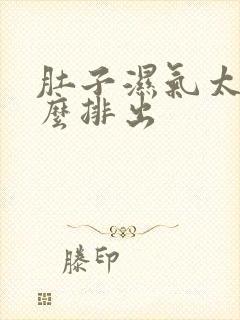 肚子濕氣太
麼排出
滕印